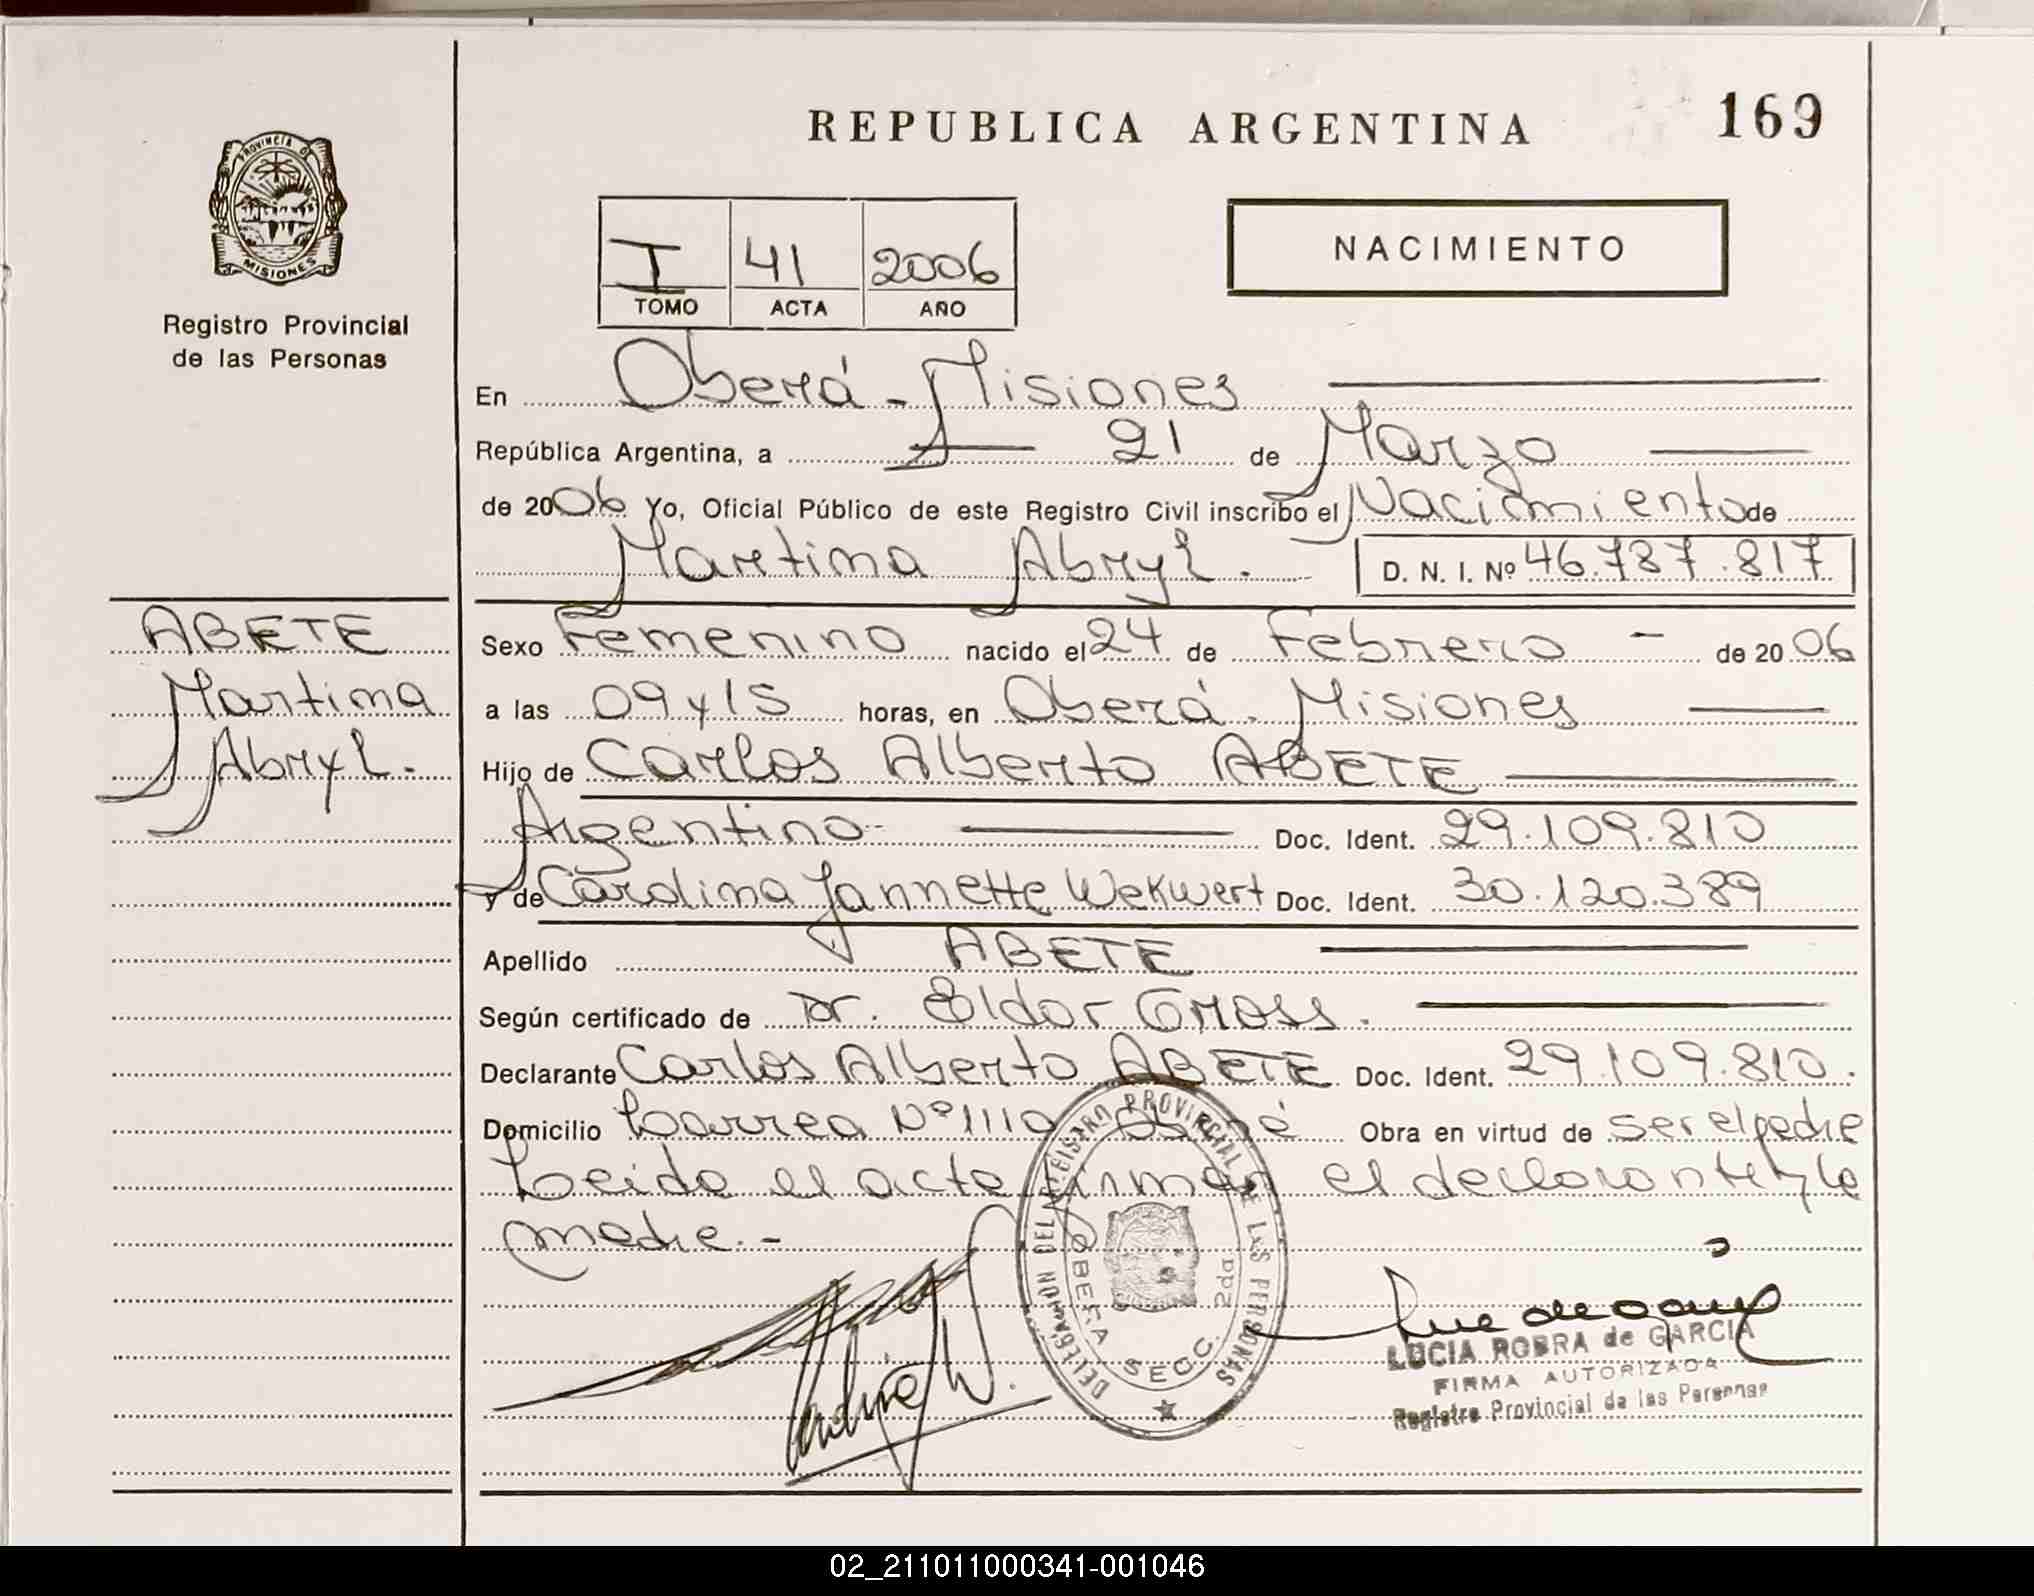 REPUBLICA ARGENTINA
169
PROVINCIA DE
MISIONES
Registro Provincial
de las Personas
I 41 2006
TOMO ACTA AÑO
NACIMIENTO
En Oberá - Misiones
República Argentina, a 21 de Marzo
de 2006 Yo, Oficial Público de este Registro Civil inscribo el Nacimiento de
Martina Abryl. D. N. I. Nº 46.787.817
ABETE
Martina
Abryl.
Sexo Femenino nacido el 24 de Febrero - de 2006
a las 09 y 15 horas, en Oberá. Misiones
Hijo de Carlos Alberto ABETE
Argentino- Doc. Ident. 29.109.810
y de Carolina Jannette Wekwert Doc. Ident. 30.120.389
Apellido ABETE
Según certificado de Dr. Eldor Gross.
Declarante Carlos Alberto ABETE Doc. Ident. 29.109.810.
Domicilio Larrea Nº 1110 Oberá Obra en virtud de ser el padre
Leida el acta firman el declarante y la
madre.-
DELEGACION DEL REGISTRO PROVINCIAL DE LAS PERSONAS
OBERA SECC. 2da
LUCIA ROBRA de GARCIA
FIRMA AUTORIZADA
Registro Provincial de las Personas
02_211011000341-001046